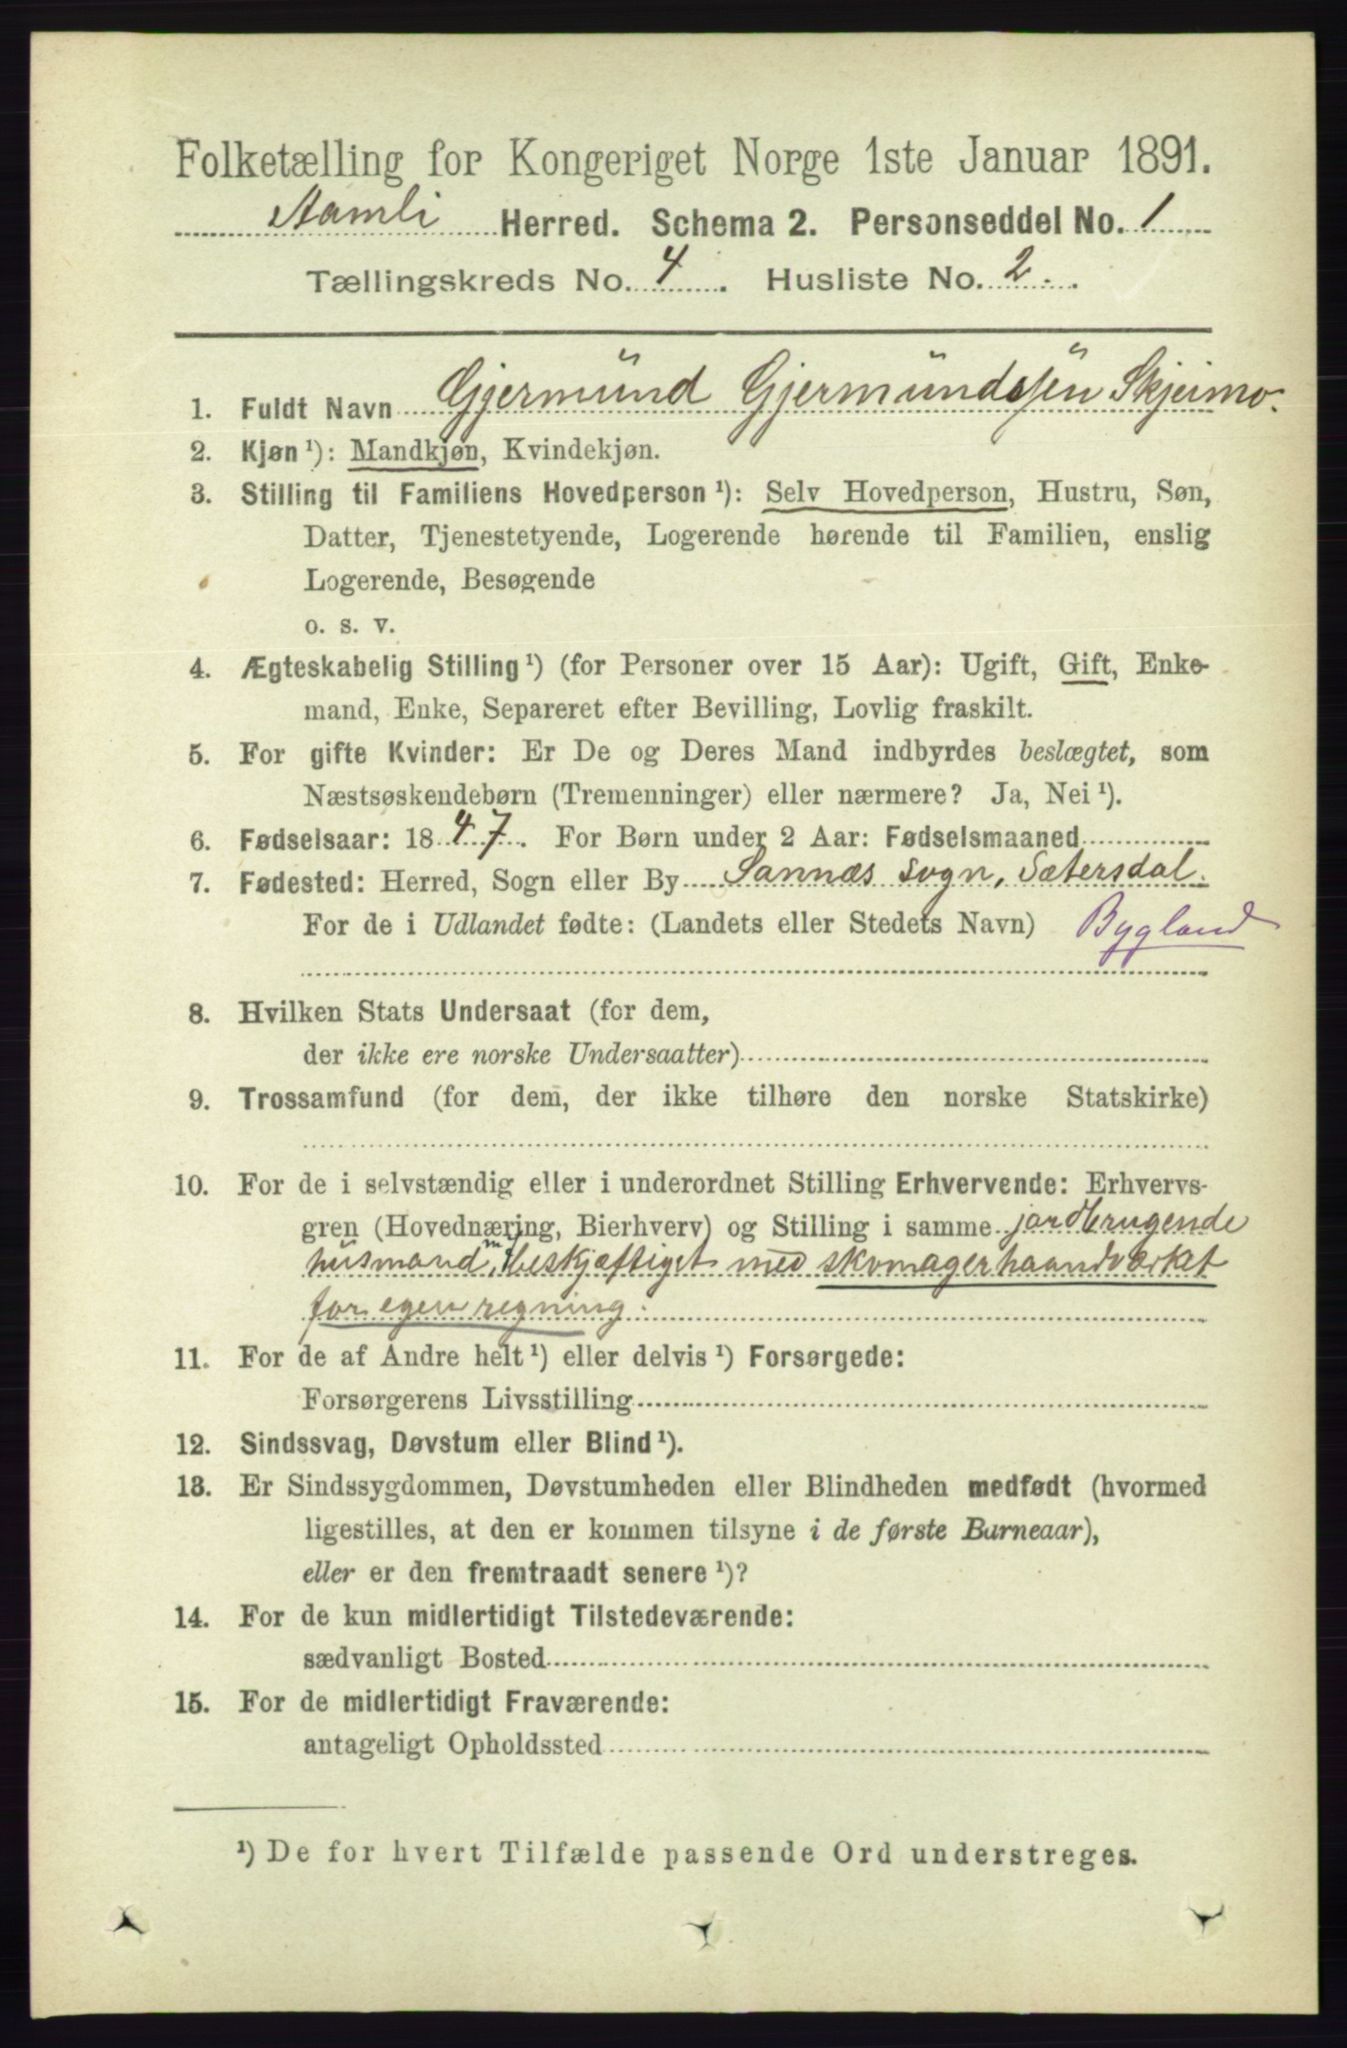 Folketælling for Kongeriget Norge 1ste Januar 1891.
Aamli Herred. Schema 2. Personseddel No. 1
Tællingskreds No. 4. Husliste No. 2.
1. Fuldt Navn Gjermünd Gjermündsen Skjeimo.
2. Kjøn ¹): Mandkjøn, Kvindekjøn.
3. Stilling til Familiens Hovedperson ¹): Selv Hovedperson, Hustru, Søn,
Datter, Tjenestetyende, Logerende hørende til Familien, enslig
Logerende, Besøgende
o. s. v.
4. Ægteskabelig Stilling ¹) (for Personer over 15 Aar): Ugift, Gift, Enke-
mand, Enke, Separeret efter Bevilling, Lovlig fraskilt.
5. For gifte Kvinder: Er De og Deres Mand indbyrdes beslægtet, som
Næstsøskendebørn (Tremenninger) eller nærmere? Ja, Nei ¹).
6. Fødselsaar: 1847. For Børn under 2 Aar: Fødselsmaaned
7. Fødested: Herred, Sogn eller By Sannæs sogn, Sætersdal.
For de i Udlandet fødte: (Landets eller Stedets Navn) Bygland
8. Hvilken Stats Undersaat (for dem,
der ikke ere norske Undersaatter)
9. Trossamfund (for dem, der ikke tilhøre den norske Statskirke)
10. For de i selvstændig eller i underordnet Stilling Erhvervende: Erhvervs-
gren (Hovednæring, Bierhverv) og Stilling i samme jordbrugende
husmand m/ beskjæftiget med skomagerhaandværket
for egen regning.
11. For de af Andre helt ¹) eller delvis ¹) Forsørgede:
Forsørgerens Livsstilling
12. Sindssvag, Døvstum eller Blind ¹).
13. Er Sindssygdommen, Døvstumheden eller Blindheden medfødt (hvormed
ligestilles, at den er kommen tilsyne i de første Barneaar),
eller er den fremtraadt senere ¹)?
14. For de kun midlertidigt Tilstedeværende:
sædvanligt Bosted
15. For de midlertidigt Fraværende:
antageligt Opholdssted
¹) De for hvert Tilfælde passende Ord understreges.